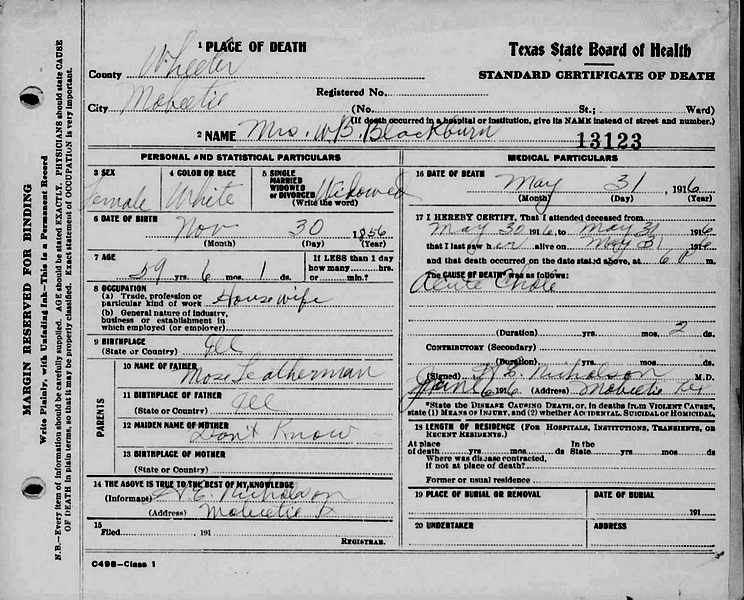 MARGIN RESERVED FOR BINDING
Write Plainly, with Unfading Ink—This is a Permanent Record
N.B.—Every item of information should be carefully supplied. AGE should be stated EXACTLY. PHYSICIANS should state CAUSE
OF DEATH in plain terms, so that it may be properly classified. Exact statement of OCCUPATION is very important.
1 PLACE OF DEATH
County Wheeler
City Mobeetie
Texas State Board of Health
STANDARD CERTIFICATE OF DEATH
Registered No.
(No. St.; Ward)
(If death occurred in a hospital or institution, give its NAME instead of street and number.)
2 NAME Mrs. W.B. Blackburn
13123
PERSONAL AND STATISTICAL PARTICULARS
3 SEX
Female
4 COLOR OR RACE
White
5 SINGLE
MARRIED
WIDOWED
or DIVORCED
(Write the word)
Widowed
6 DATE OF BIRTH
Nov 30 1856
(Month) (Day) (Year)
7 AGE
59 yrs. 6 mos. 1 ds.
If LESS than 1 day
how many hrs.
or min.?
8 OCCUPATION
(a) Trade, profession or
particular kind of work Housewife
(b) General nature of industry,
business or establishment in
which employed (or employer)
9 BIRTHPLACE
(State or Country) Ill
PARENTS
10 NAME OF FATHER
Mose Leatherman
11 BIRTHPLACE OF FATHER
(State or Country) Ill
12 MAIDEN NAME OF MOTHER
Don't Know
13 BIRTHPLACE OF MOTHER
(State or Country)
14 THE ABOVE IS TRUE TO THE BEST OF MY KNOWLEDGE
(Informant) H.E. Nicholson
(Address) Mobeetie Tx
15
Filed 191
REGISTRAR.
C498—Class 1
MEDICAL PARTICULARS
16 DATE OF DEATH May 31, 1916
(Month) (Day) (Year)
17 I HEREBY CERTIFY, That I attended deceased from
May 30 1916, to May 31 1916
that I last saw her alive on May 31 1916
and that death occurred on the date stated above, at 6 P m.
The CAUSE OF DEATH* was as follows:
Acute
(Duration) yrs. mos. 2 ds.
CONTRIBUTORY (Secondary)
(Duration) yrs. mos. ds.
(Signed) H.E. Nicholson M.D.
June 6 1916 (Address) Mobeetie
*State the DISEASE CAUSING DEATH, or, in deaths from VIOLENT CAUSES,
state (1) MEANS OF INJURY, and (2) whether ACCIDENTAL, SUICIDAL or HOMICIDAL.
18 LENGTH OF RESIDENCE (FOR HOSPITALS, INSTITUTIONS, TRANSIENTS, OR
RECENT RESIDENTS.)
At place
of death yrs. mos. ds.
In the
State yrs. mos. ds.
Where was disease contracted,
if not at place of death?
Former or usual residence
19 PLACE OF BURIAL OR REMOVAL
DATE OF BURIAL
191
20 UNDERTAKER
ADDRESS